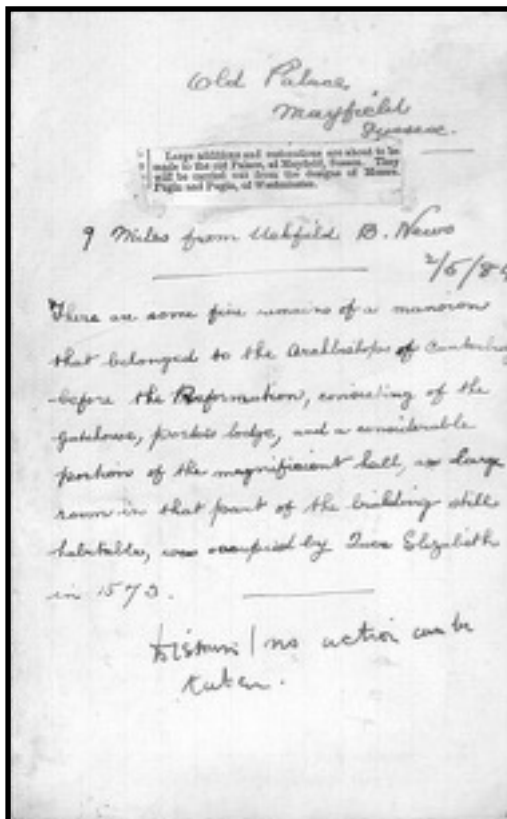 Old Palace,
Mayfield
Sussex.
Large additions and restorations are about to be
made to the old Palace, at Mayfield, Sussex. They
will be carried out from the designs of Messrs.
Pugin and Pugin, of Westminster.
9 Miles from Uckfield B. News
2/5/84
There are some fine remains of a mansion
that belonged to the Archbishops of Canterbury
before the Reformation, consisting of the
gatehouse, porter's lodge, and a considerable
portion of the magnificient hall, a large
room in that part of the building still
habitable, was occupied by Queen Elizabeth
in 1573.
no action can be
taken.